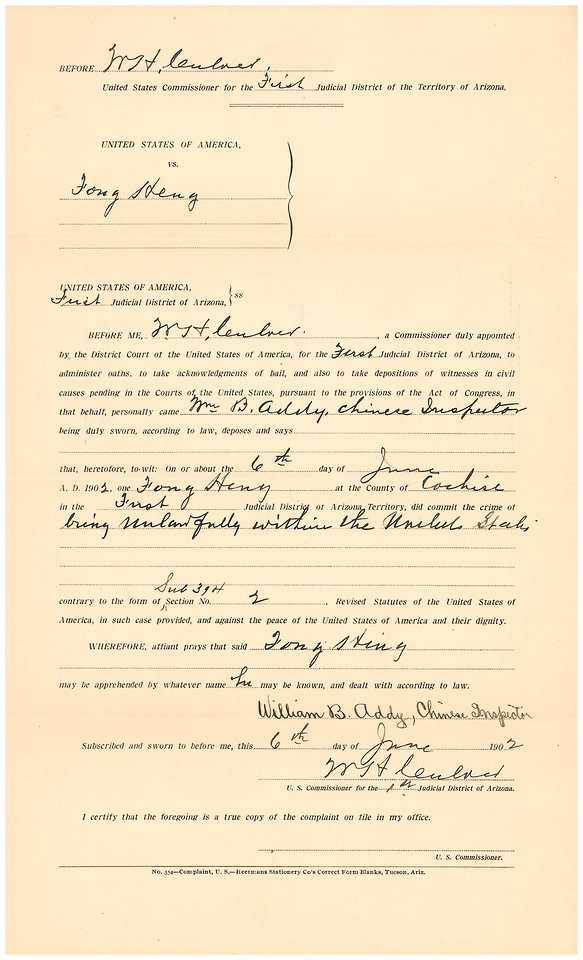 BEFORE W H, Culver,
United States Commissioner for the First Judicial District of the Territory of Arizona.
UNITED STATES OF AMERICA,
vs.
Fong Heng
UNITED STATES OF AMERICA,
First Judicial District of Arizona, } ss
BEFORE ME, W H, Culver. , a Commissioner duly appointed
by the District Court of the United States of America, for the First Judicial District of Arizona, to
administer oaths, to take acknowledgments of bail, and also to take depositions of witnesses in civil
causes pending in the Courts of the United States, pursuant to the provisions of the Act of Congress, in
that behalf, personally came Wm B. Addy, Chinese Inspector
being duly sworn, according to law, deposes and says
that, heretofore, to-wit: On or about the 6th day of June
A. D. 1902, one Fong Heng at the County of Cochise
in the First Judicial District of Arizona Territory, did commit the crime of
being unlawfully within the United States
contrary to the form of Section No. 2, Revised Statutes of the United States of
America, in such case provided, and against the peace of the United States of America and their dignity.
WHEREFORE, affiant prays that said Fong Hing
may be apprehended by whatever name he may be known, and dealt with according to law.
William B. Addy, Chinese Inspector
Subscribed and sworn to before me, this 6th day of June 1902
W H Culver
U. S. Commissioner for the 1st Judicial District of Arizona.
I certify that the foregoing is a true copy of the complaint on file in my office.
U. S. Commissioner.
No. 352—Complaint, U. S.—Heermans Stationery Co's Correct Form Blanks, Tucson, Ariz.